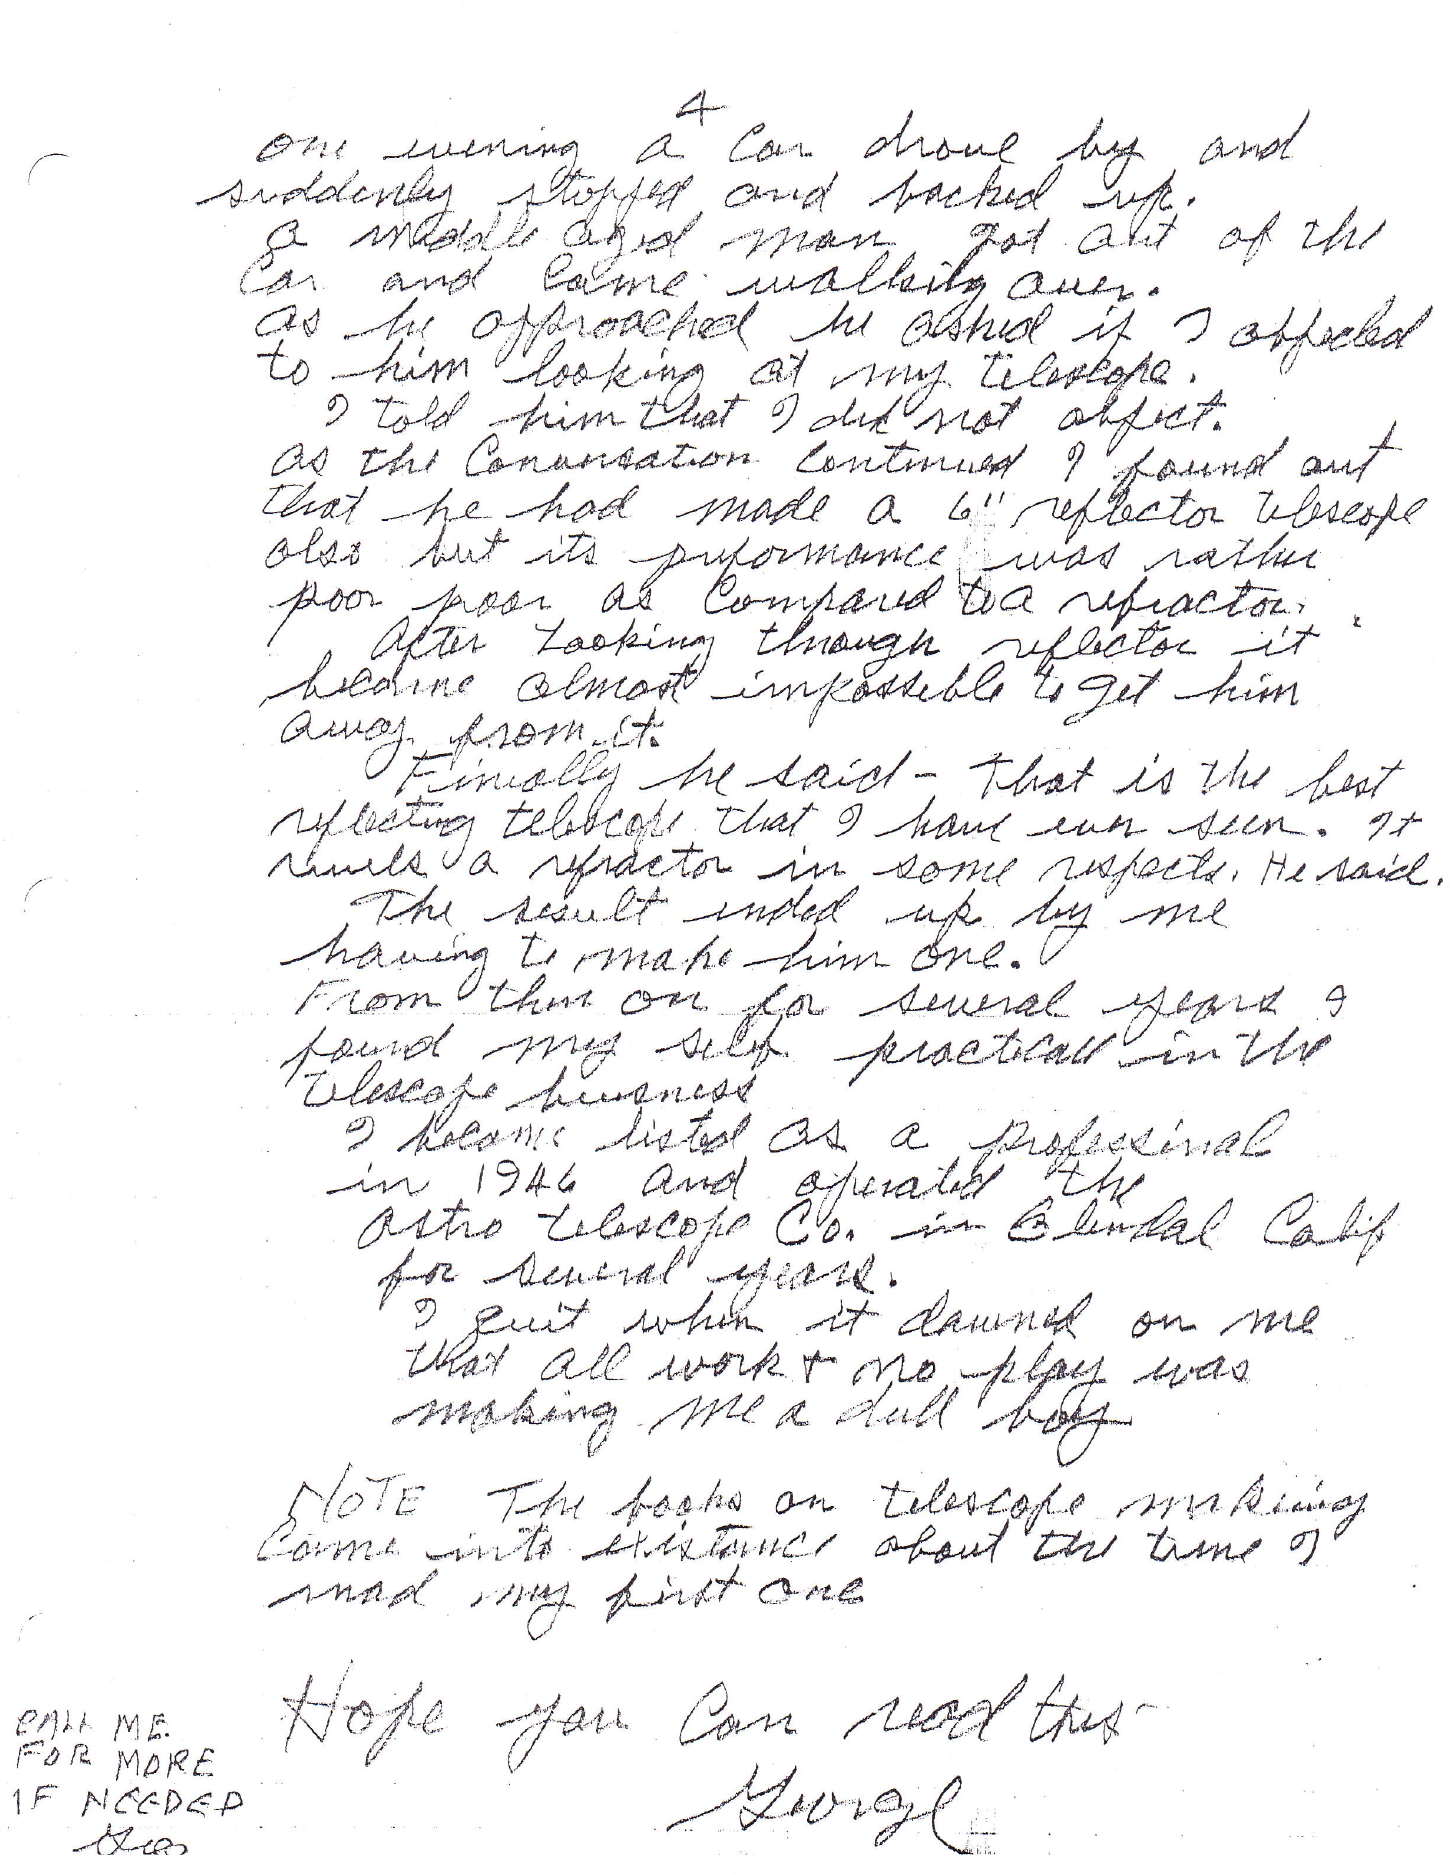 4
one evening a car drove by and
suddenly stopped and backed up.
a middle aged man got out of the
car and came walking over.
as he approached he asked if I objected
to him looking at my telescope.
I told him that I did not object.
as the conversation continued I found out
that he had made a 6" reflector telescope
also but its performance was rather
poor poor as compared to a refractor.
After Looking through reflector it
became almost impossible to get him
away from it.
Finially he said - That is the best
reflecting telescope that I have ever seen. It
rivels a refractor in some respects. He said.
The result ended up by me
having to make him one.
From then on for several years I
found my self practicaly in the
telescope business
I became listed as a professinal
in 1946 and operated the
astro telescope Co. in Glendal Calif
for several years.
I quit when it dawned on me
that all work + no play was
making me a dull boy
NOTE The books on telescope making
came into existance about the time I
mad my first one
Hope you can read this
George
CALL ME
FOR MORE
IF NEEDED
Geo